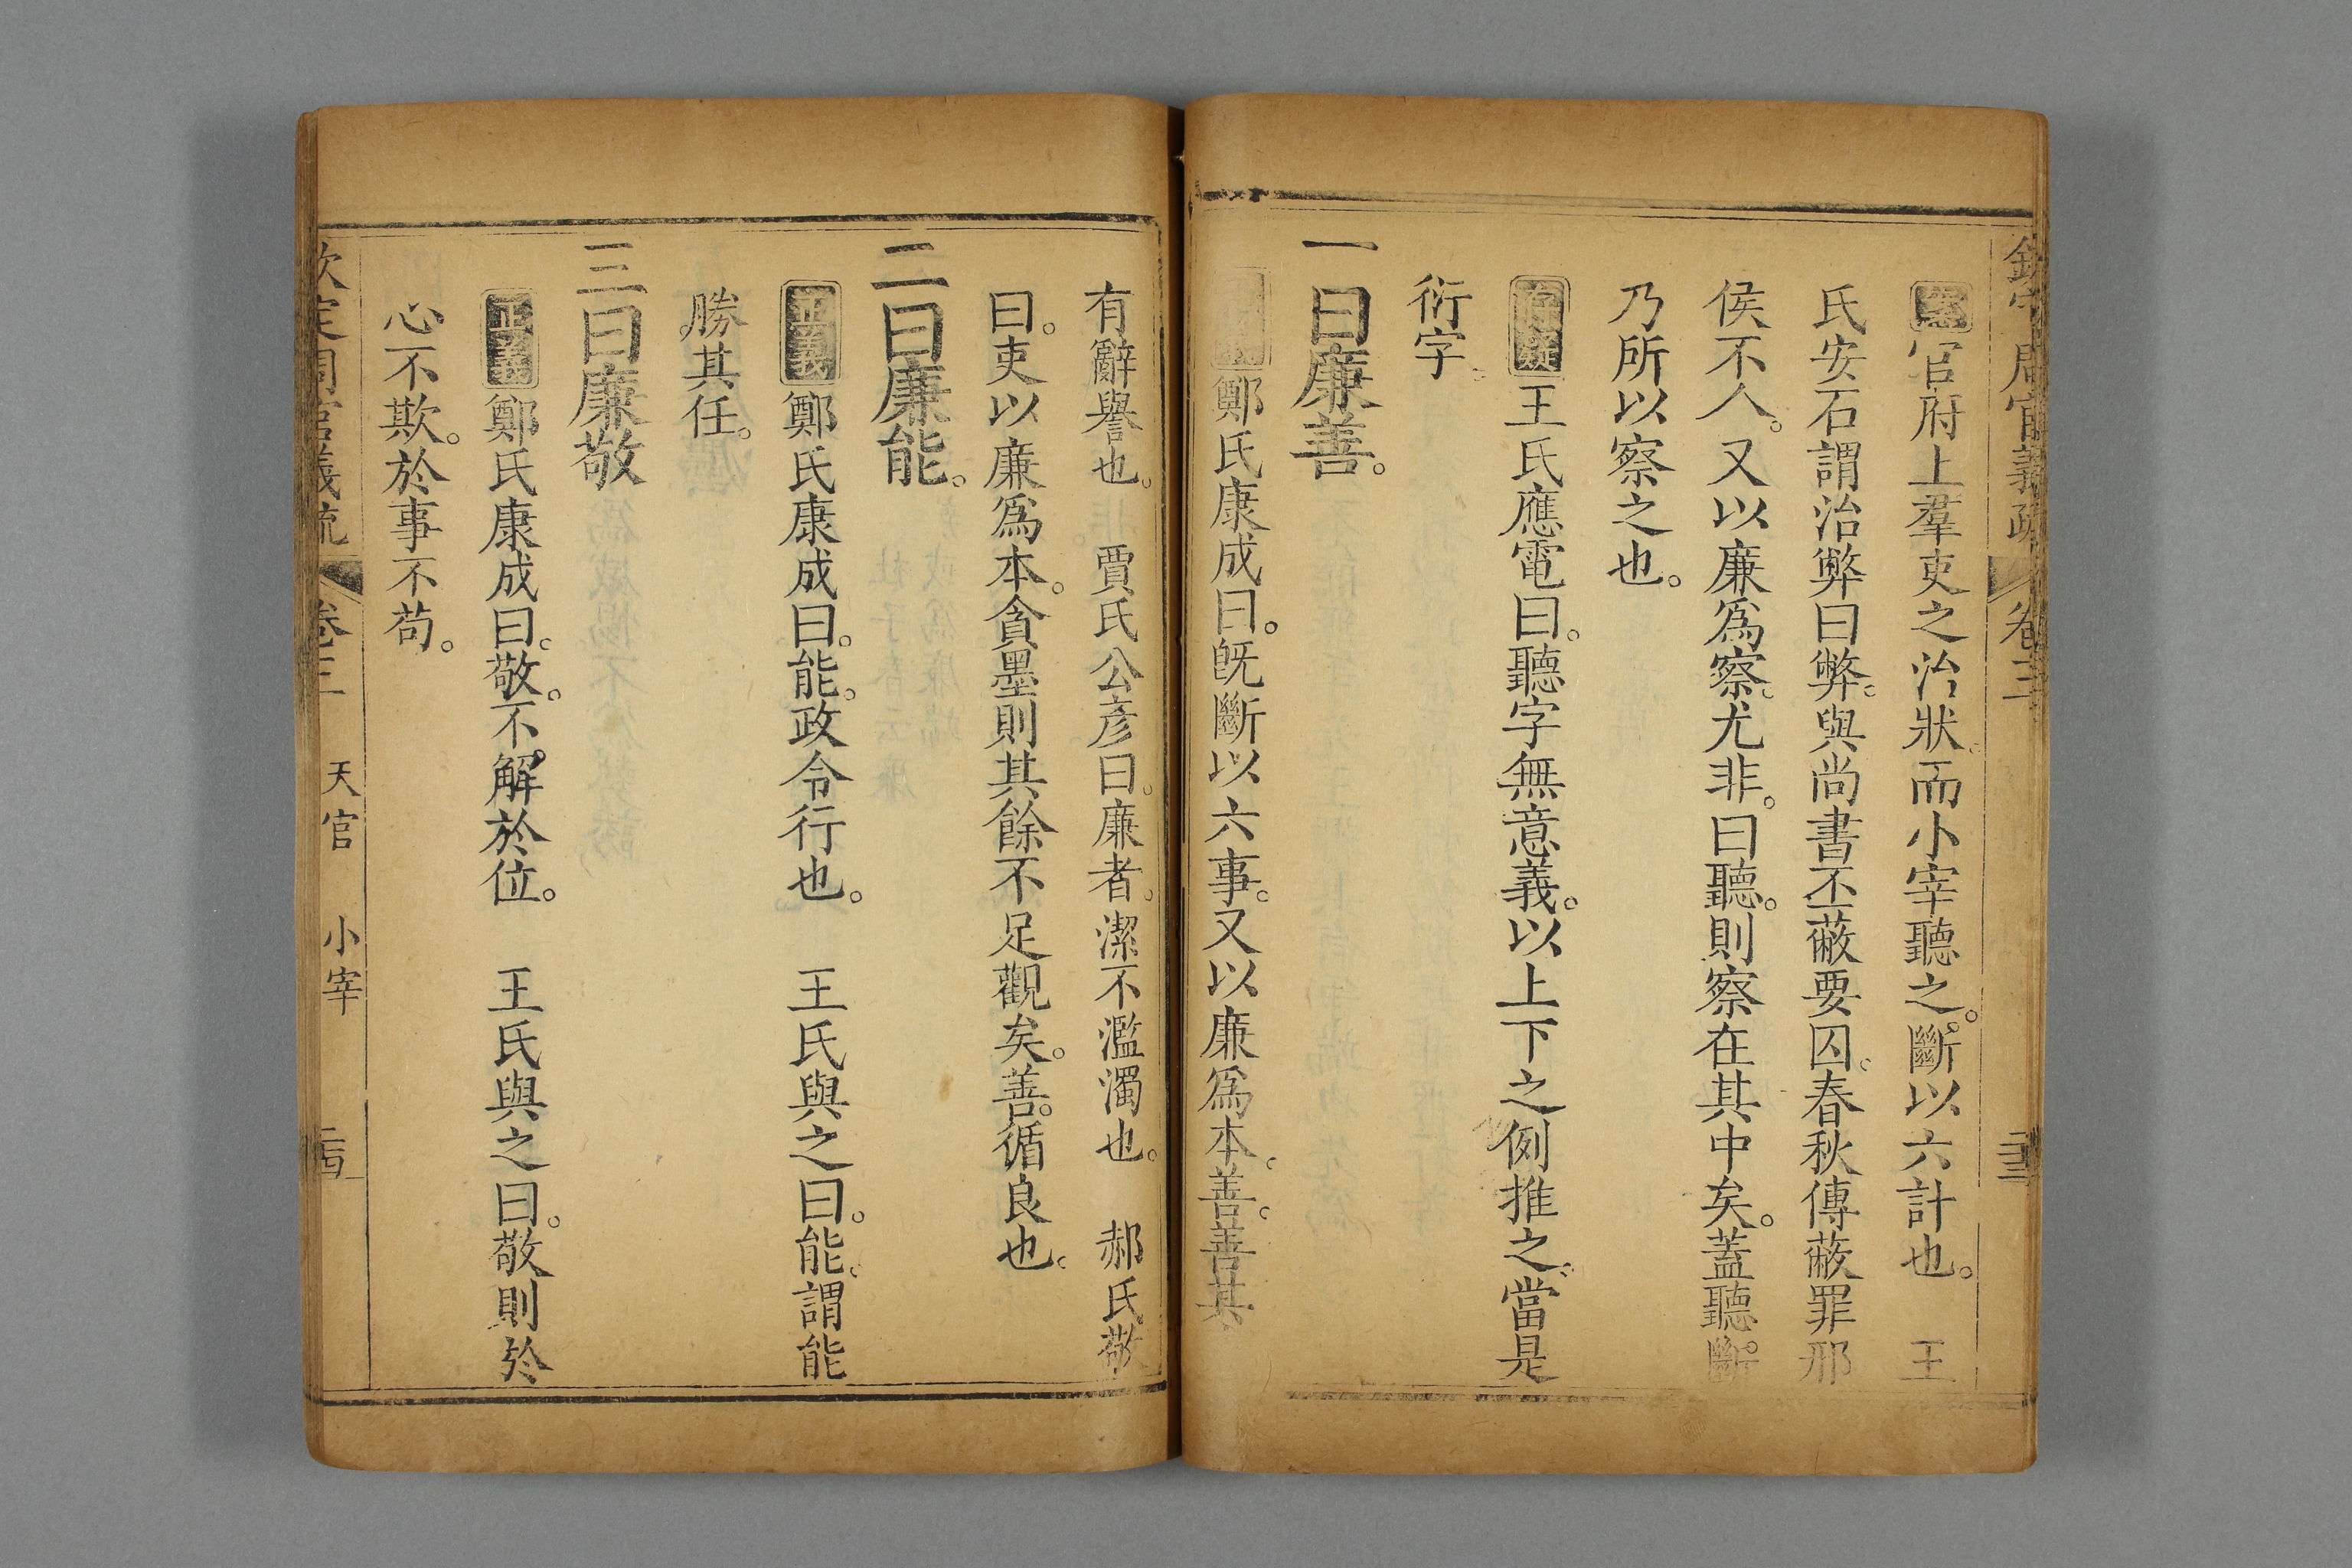 周官義疏 卷三
案官府上羣吏之治狀。而小宰聽之。斷以六計也。 王
氏安石謂治弊曰弊。與尚書丕蔽要囚。春秋傳蔽罪邢
侯不人。又以廉爲察。尤非。曰聽。則察在其中矣。蓋聽。斷
乃所以察之也。
存疑王氏應電曰。聽字無意義。以上下之例推之。當是
衍字
一曰廉善。
鄭氏康成曰。旣斷以六事。又以廉爲本。善。善其
有辭譽也。 賈氏公彥曰。廉者。潔不濫濁也。 郝氏敬
曰。吏以廉爲本。貪墨則其餘不足觀矣。善。循良也。
二曰廉能。
正義鄭氏康成曰。能。政令行也。 王氏與之曰。能。謂能
勝其任。
三曰廉敬
正義鄭氏康成曰。敬。不解於位。 王氏與之曰。敬則於
心不欺。於事不苟。
欽定周官義疏 卷三 天官 小宰